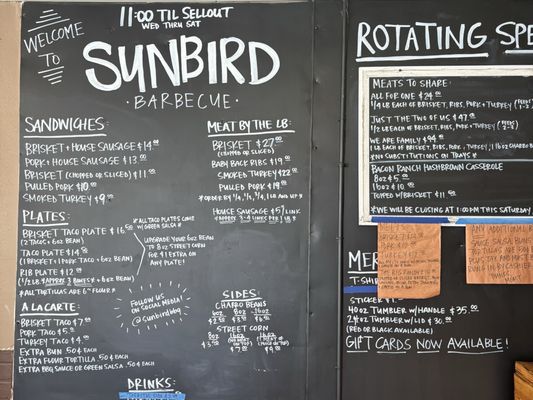 WELCOME
TO
11:00 TIL SELLOUT
WED THRU SAT
SUNBIRD
· BARBECUE ·
SANDWICHES
BRISKET + HOUSE SAUSAGE $14.00
PORK + HOUSE SAUSAGE $13.00
BRISKET (CHOPPED OR SLICED) $11.00
PULLED PORK $10.00
SMOKED TURKEY $9.00
PLATES:
BRISKET TACO PLATE $16.50
(2 TACOS + 6OZ BEAN)
TACO PLATE $14.50
(1 BRISKET + 1 PORK TACO + 6OZ BEAN)
RIB PLATE $12.00
(1/2 LB APPROX 2 BONES + 6OZ BEAN)
*ALL TORTILLAS ARE 6" FLOUR*
*ALL TACO PLATES COME
W/ GREEN SALSA*
UPGRADE YOUR 6OZ BEAN
TO 8OZ STREET CORN
FOR $1 EXTRA ON
ANY PLATE!
A LA CARTE:
BRISKET TACO $7.00
PORK TACO $5.00
TURKEY TACO $4.00
EXTRA BUN .50¢ EACH
EXTRA FLOUR TORTILLA .50¢ EACH
EXTRA BBQ SAUCE OR GREEN SALSA .50¢ EACH
FOLLOW US
ON SOCIAL MEDIA
@Sunbirdbbq
MEAT BY THE LB:
BRISKET $27.00
(CHOPPED OR SLICED)
BABY BACK RIBS $19.00
SMOKED TURKEY $22.00
PULLED PORK $19.00
*ORDER BY 1/4, 1/2, 3/4, 1 LB AND UP*
HOUSE SAUSAGE $5/LINK
*APPROX 3-4 LINKS PER 1 LB*
SIDES:
CHARRO BEANS
6OZ 8OZ 16OZ
STREET CORN
8OZ 16OZ
DRINKS:
ROTATING SPE
MEATS TO SHARE:
ALL FOR ONE $24.00
1/4 LB EACH OF BRISKET, RIBS, PORK + TURKEY
JUST THE TWO OF US $47.00
1/2 LB EACH OF BRISKET, RIBS, PORK + TURKEY
WE ARE FAMILY $94.00
1 LB EACH OF BRISKET, RIBS, PORK + TURKEY / 16OZ CHARRO
*NO SUBSTITUTIONS ON TRAYS*
BACON RANCH HASHBROWN CASSEROLE
8OZ $5.00
16OZ $10.00
TOPPED W/ BRISKET $11.00
*WE WILL BE CLOSING AT THIS SATURDAY
ANY ADDITIONAL
MER
T-SHIR
STICKER $1.00
40OZ TUMBLER W/HANDLE $35.00
24OZ TUMBLER W/LID $30.00
(RED OR BLACK AVAILABLE)
GIFT CARDS NOW AVAILABLE!